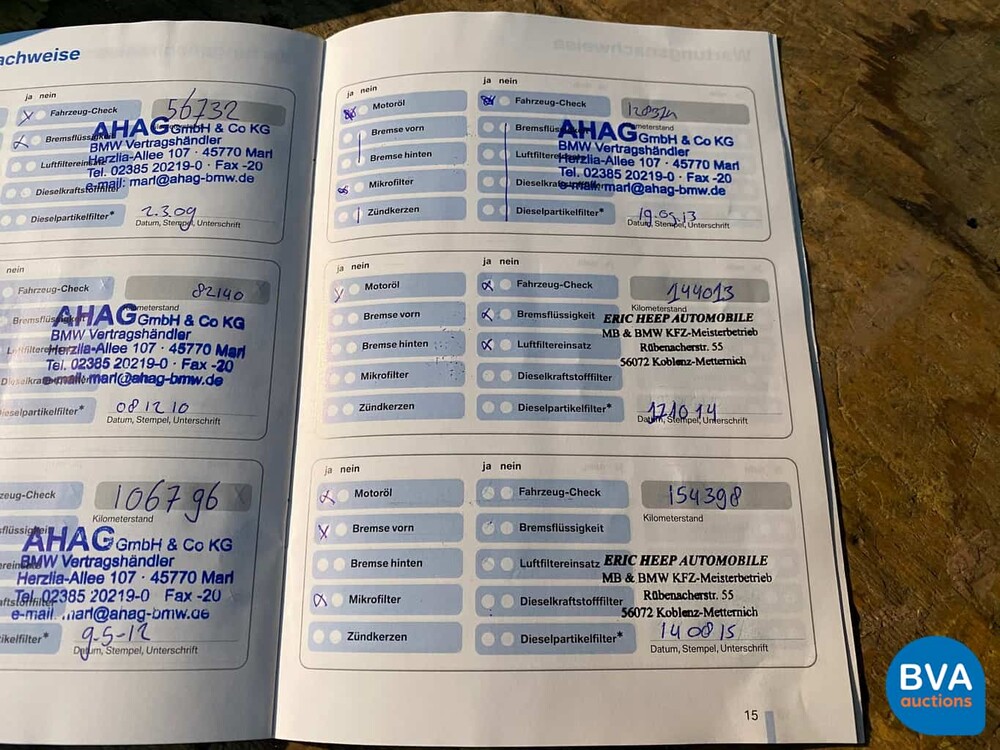 achweise
ja nein
Fahrzeug-Check
56732
AHAG GmbH & Co KG
BMW Vertragshändler
Herzlia-Allee 107 · 45770 Marl
Tel. 02385 20219-0 · Fax -20
e-mail: marl@ahag-bmw.de
Dieselpartikelfilter*
2.3.09
Datum, Stempel, Unterschrift
nein
Fahrzeug-Check
82140
AHAG GmbH & Co KG
BMW Vertragshändler
Herzlia-Allee 107 · 45770 Marl
Tel. 02385 20219-0 · Fax -20
e-mail: marl@ahag-bmw.de
ieselpartikelfilter*
08 12 10
Datum, Stempel, Unterschrift
zeug-Check
106796
Kilometerstand
AHAG GmbH & Co KG
BMW Vertragshändler
Herzlia-Allee 107 · 45770 Marl
Tel. 02385 20219-0 Fax -20
e-mail marl@ahag-bmw.de
ikelfilter*
9-5-12
Datum, Stempel, Unterschrift
ja nein
ja nein
Motoröl
Fahrzeug-Check
Bremse vorn
Bremse hinten
Mikrofilter
Zündkerzen
Dieselpartikelfilter*
AHAG GmbH & Co KG
BMW Vertragshändler
Herzlia-Allee 107 · 45770 Marl
Tel. 02385 20219-0 · Fax -20
e-mail: marl@ahag-bmw.de
19.03.13
Datum, Stempel, Unterschrift
ja nein
ja nein
Motoröl
Fahrzeug-Check
144013
Kilometerstand
Bremse vorn
Bremsflüssigkeit
ERIC HEEP AUTOMOBILE
MB & BMW KFZ-Meisterbetrieb
Bremse hinten
Luftfiltereinsatz
Rübenacherstr. 55
56072 Koblenz-Metternich
Mikrofilter
Dieselkraftstofffilter
Zündkerzen
Dieselpartikelfilter*
17 10 14
Datum, Stempel, Unterschrift
ja nein
ja nein
Motoröl
Fahrzeug-Check
154398
Kilometerstand
Bremse vorn
Bremsflüssigkeit
Bremse hinten
Luftfiltereinsatz
ERIC HEEP AUTOMOBILE
MB & BMW KFZ-Meisterbetrieb
Mikrofilter
Dieselkraftstofffilter
Rübenacherstr. 55
56072 Koblenz-Metternich
Zündkerzen
Dieselpartikelfilter*
14 08 15
Datum, Stempel, Unterschrift
15
BVA
auctions